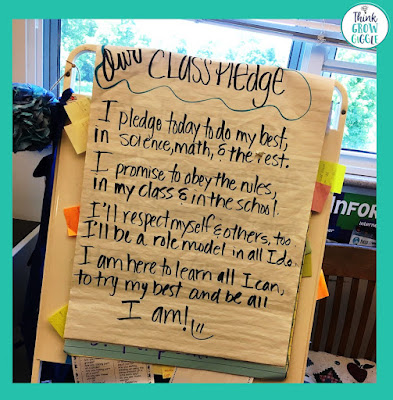 Think
GROW
GIGGLE
Our CLASS PLEDGE
I pledge today to do my best,
in science, math, & the rest.
I promise to obey the rules,
in my class & in the school.
I'll respect myself & others, too.
I'll be a role model in all I do.
I am here to learn all I can,
to try my best and be all
I am!
INFOR